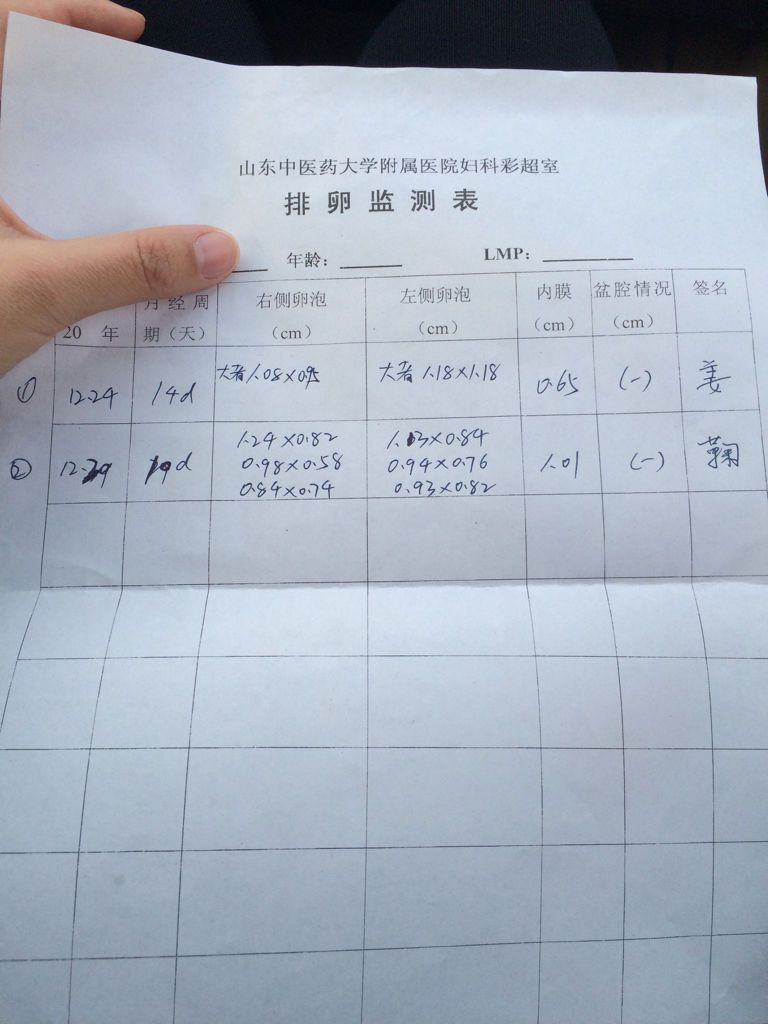 山东中医药大学附属医院妇科彩超室
排卵监测表
年龄： LMP：
20 年 月经周期（天） 右侧卵泡（cm） 左侧卵泡（cm） 内膜（cm） 盆腔情况（cm） 签名
① 12.24 14d 大者1.08×0.95 大者1.18×1.18 0.65 (-) 姜
② 12.29 19d 1.24×0.82 1.13×0.84 1.01 (-) 鞠
0.98×0.58 0.94×0.76
0.84×0.74 0.93×0.82